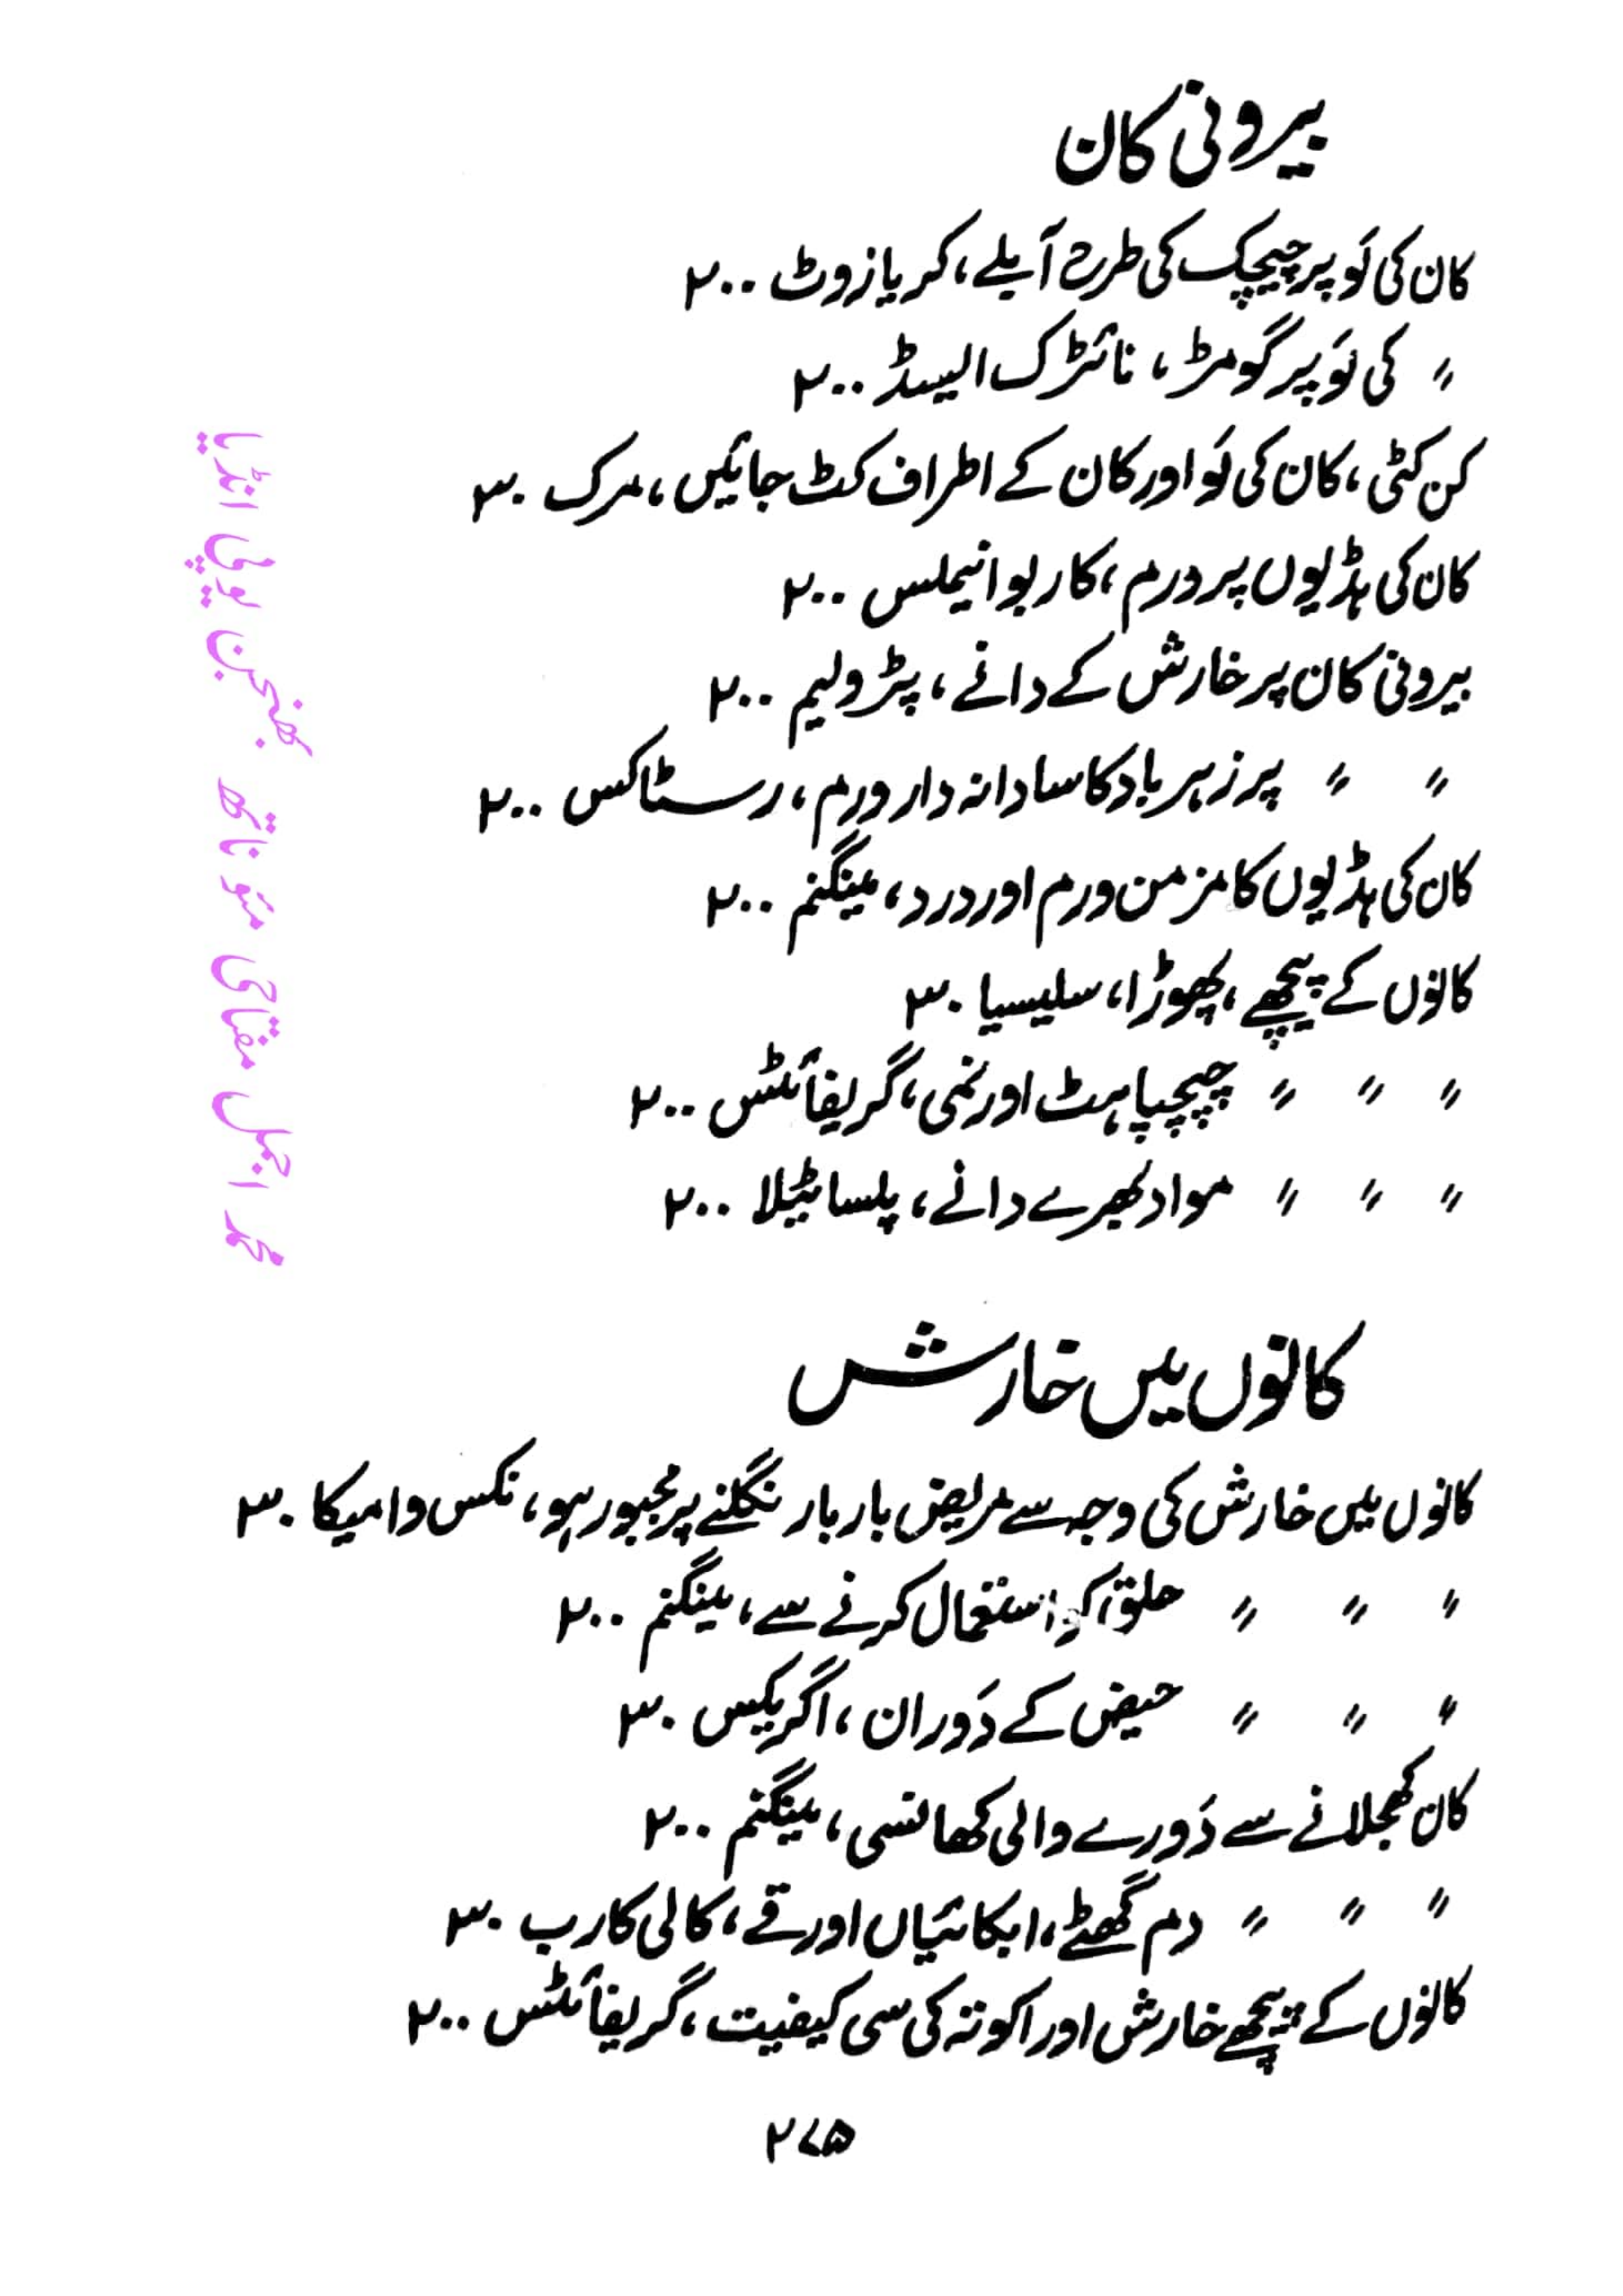 بیرونی کان
کان کی لَو پر چیچک کی طرح آبلے، کریازوٹ ۲۰۰
〃 کی لَو پر گومڑ، نائٹرک ایسڈ ۲۰۰
کن کٹی، کان کی لَو اور کان کے اطراف کٹ جائیں، مرک ۳۰
کان کی ہڈیوں پر ورم، کاربوانیملس ۲۰۰
بیرونی کان پر خارش کے دانے، پٹرولیم ۲۰۰
〃 〃 پر زہرباد کا سا دانہ دار ورم، رسٹاکس ۲۰۰
کان کی ہڈیوں کا مزمن ورم اور درد، مینگنم ۲۰۰
کانوں کے پیچھے، پھوڑا، سلیسیا ۳۰
〃 〃 〃 چپچپاہٹ اور نمی، گریفائٹس ۲۰۰
〃 〃 〃 مواد بھرے دانے، پلساٹیلا ۲۰۰
کانوں میں خارش
کانوں میں خارش کی وجہ سے مریض بار بار نگلنے پر مجبور ہو، نکس وامیکا ۳۰
〃 〃 〃 حلق استعمال کرنے سے، مینگنم ۲۰۰
〃 〃 〃 حیض کے دَوران، اگریکس ۳۰
کان کھجلانے سے دَورے والی کھانسی، مینگنم ۲۰۰
〃 〃 〃 دم گھٹے، ابکائیاں اور قے، کالی کارب ۳۰
کانوں کے پیچھے خارش اور اکوتہ کی سی کیفیت، گریفائٹس ۲۰۰
۲۷۵
محمد اجمل مفتاحی مئو ناتھ بھنجن یوپی انڈیا